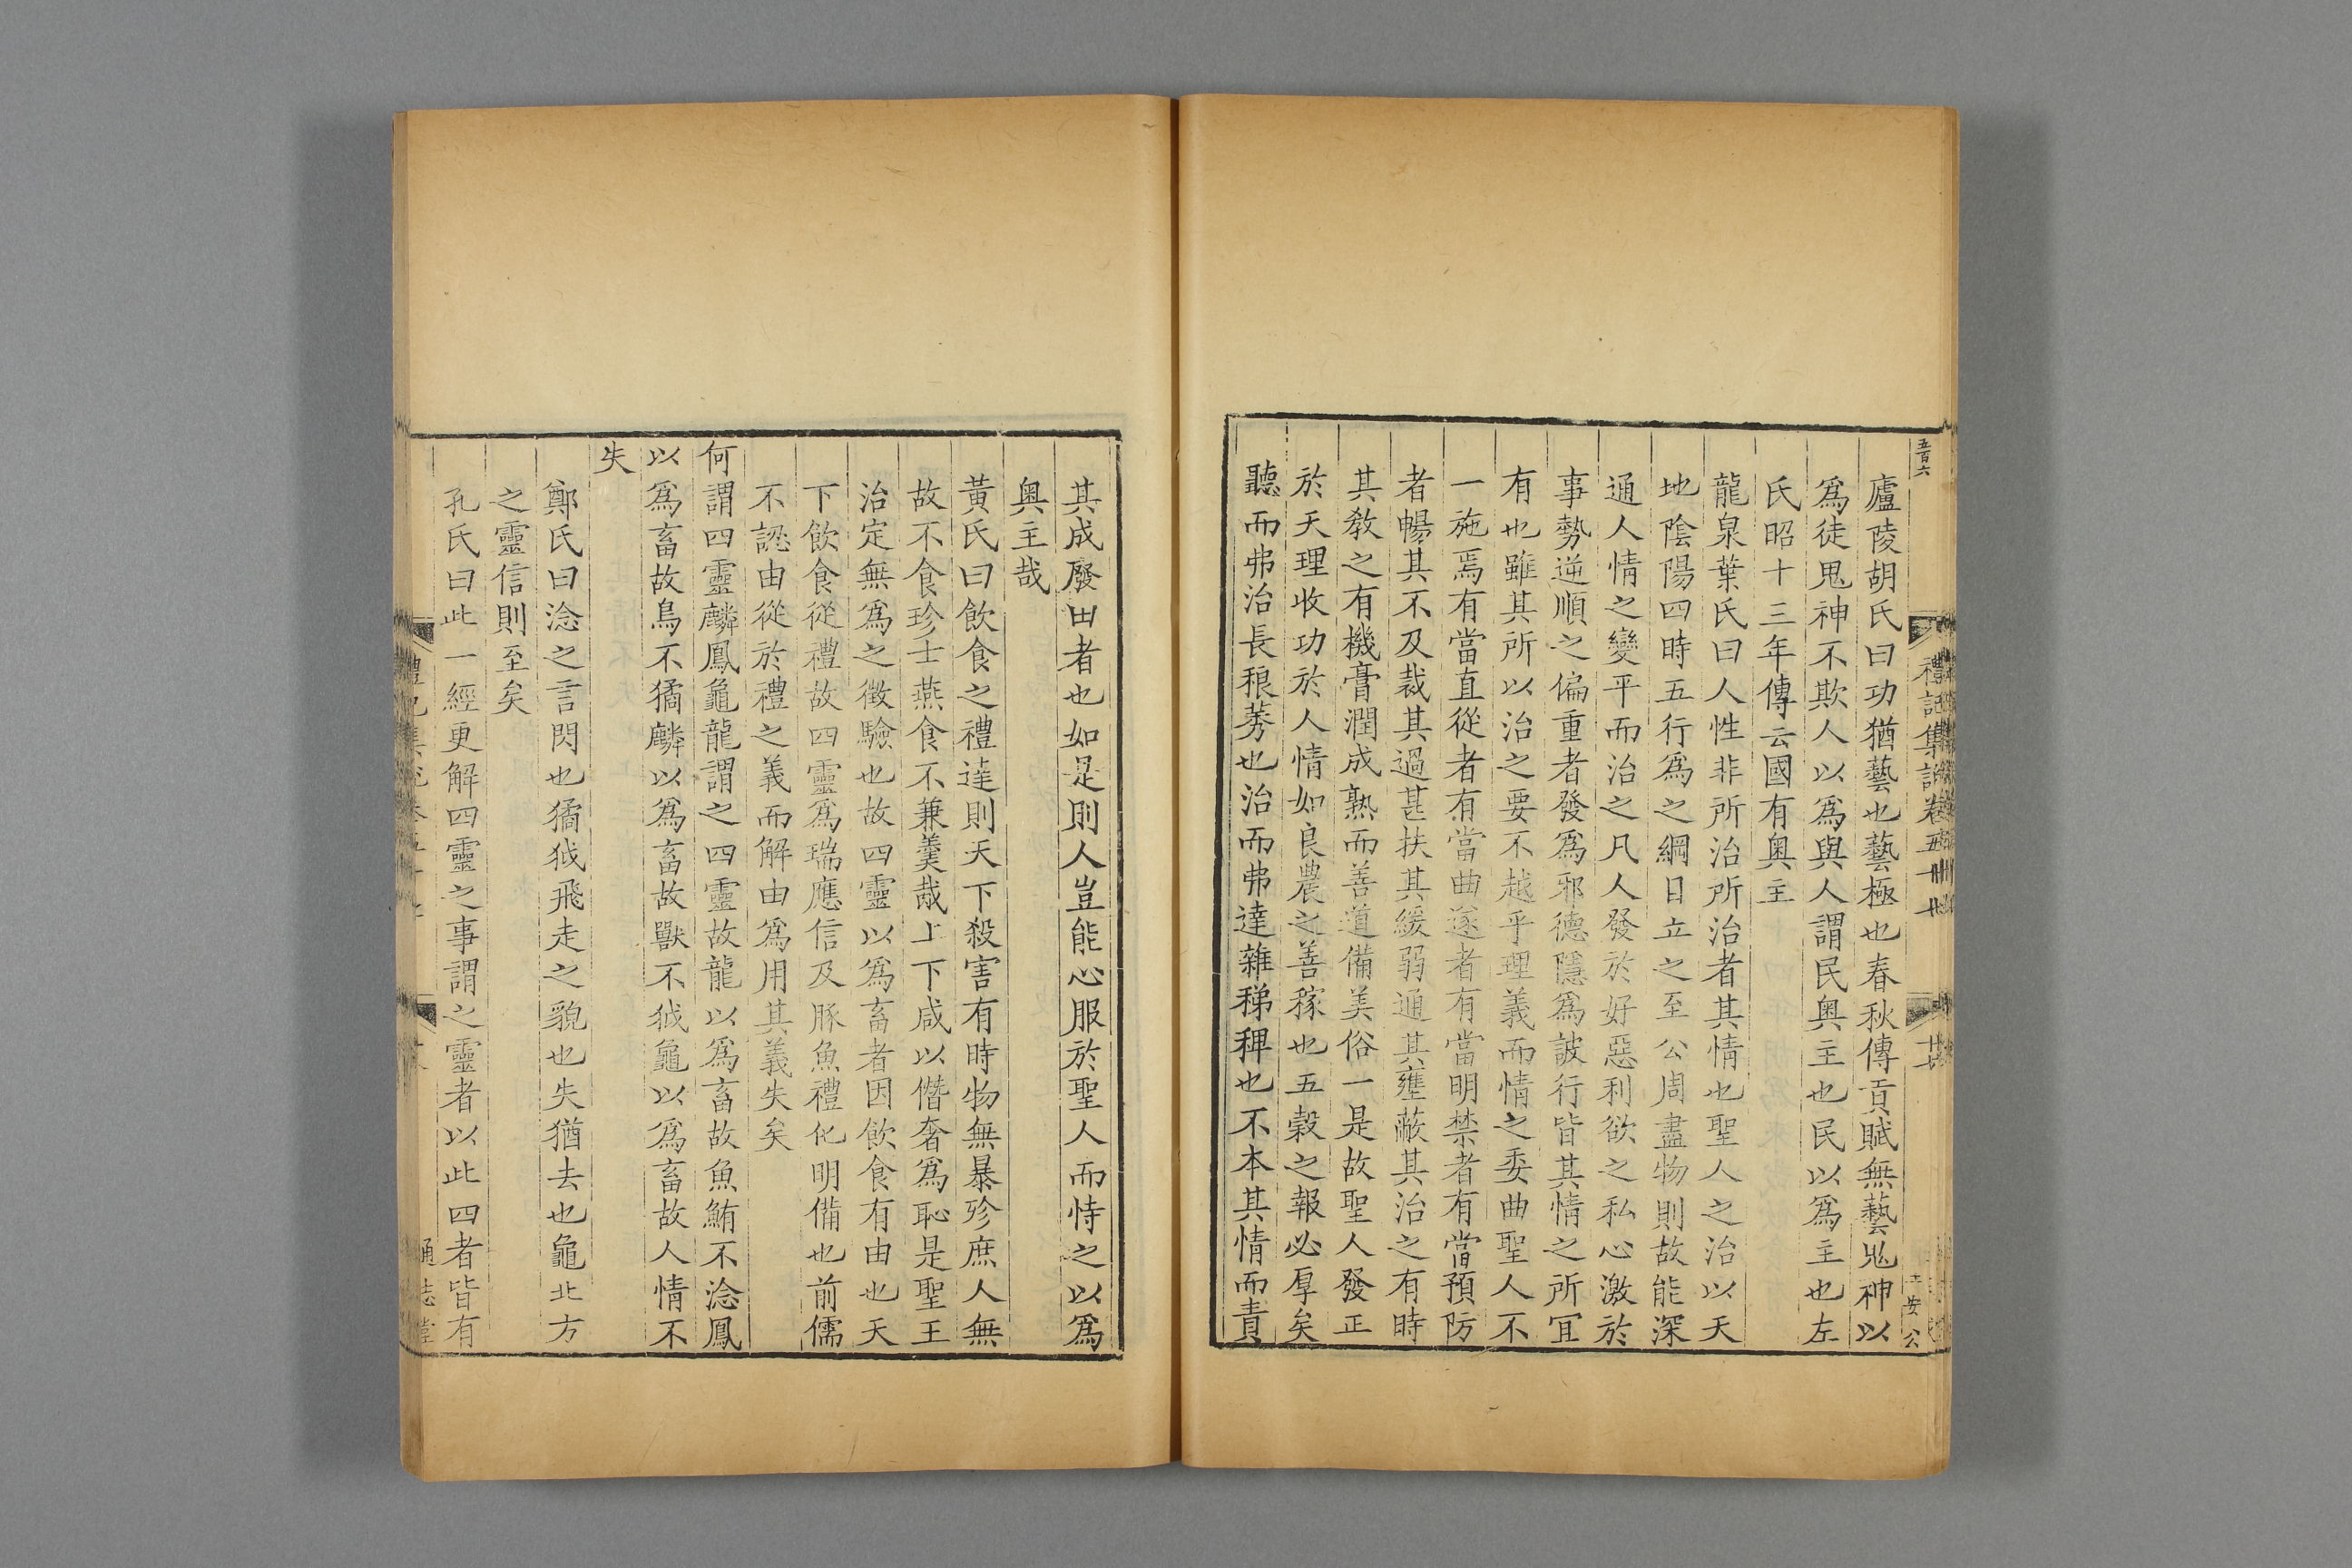 五百六
禮記集說卷五十七
十七
廬陵胡氏曰功猶藝也藝極也春秋傳貢賦無藝鬼神以
爲徒鬼神不欺人以爲與人謂民奥主也民以爲主也左
氏昭十三年傳云國有奥主
龍泉葉氏曰人性非所治所治者其情也聖人之治以天
地陰陽四時五行爲之綱日立之至公周盡物則故能深
通人情之變平而治之凡人發於好惡利欲之私心激於
事勢逆順之偏重者發爲邪德隱爲詖行皆其情之所宜
有也雖其所以治之要不越乎理義而情之委曲聖人不
一施焉有當直從者有當曲遂者有當明禁者有當預防
者暢其不及裁其過甚扶其緩弱通其壅蔽其治之有時
其教之有機膏潤成熟而善道備美俗一是故聖人發正
於天理收功於人情如良農之善稼也五穀之報必厚矣
聽而弗治長稂莠也治而弗達雜稊稗也不本其情而責
其成廢田者也如是則人豈能心服於聖人而恃之以爲
奥主哉
黄氏曰飲食之禮達則天下殺害有時物無暴殄庶人無
故不食珍士燕食不兼羹胾上下咸以僭奢爲恥是聖王
治定無爲之徵驗也故四靈以爲畜者因飲食有由也天
下飲食從禮故四靈爲瑞應信及豚魚禮化明備也前儒
不認由從於禮之義而解由爲用其義失矣
何謂四靈麟鳳龜龍謂之四靈故龍以爲畜故魚鮪不淰鳳
以爲畜故鳥不獝麟以爲畜故獸不狘龜以爲畜故人情不
失
鄭氏曰淰之言閃也獝狘飛走之貌也失猶去也龜北方
之靈信則至矣
孔氏曰此一經更解四靈之事謂之靈者以此四者皆有
通志堂